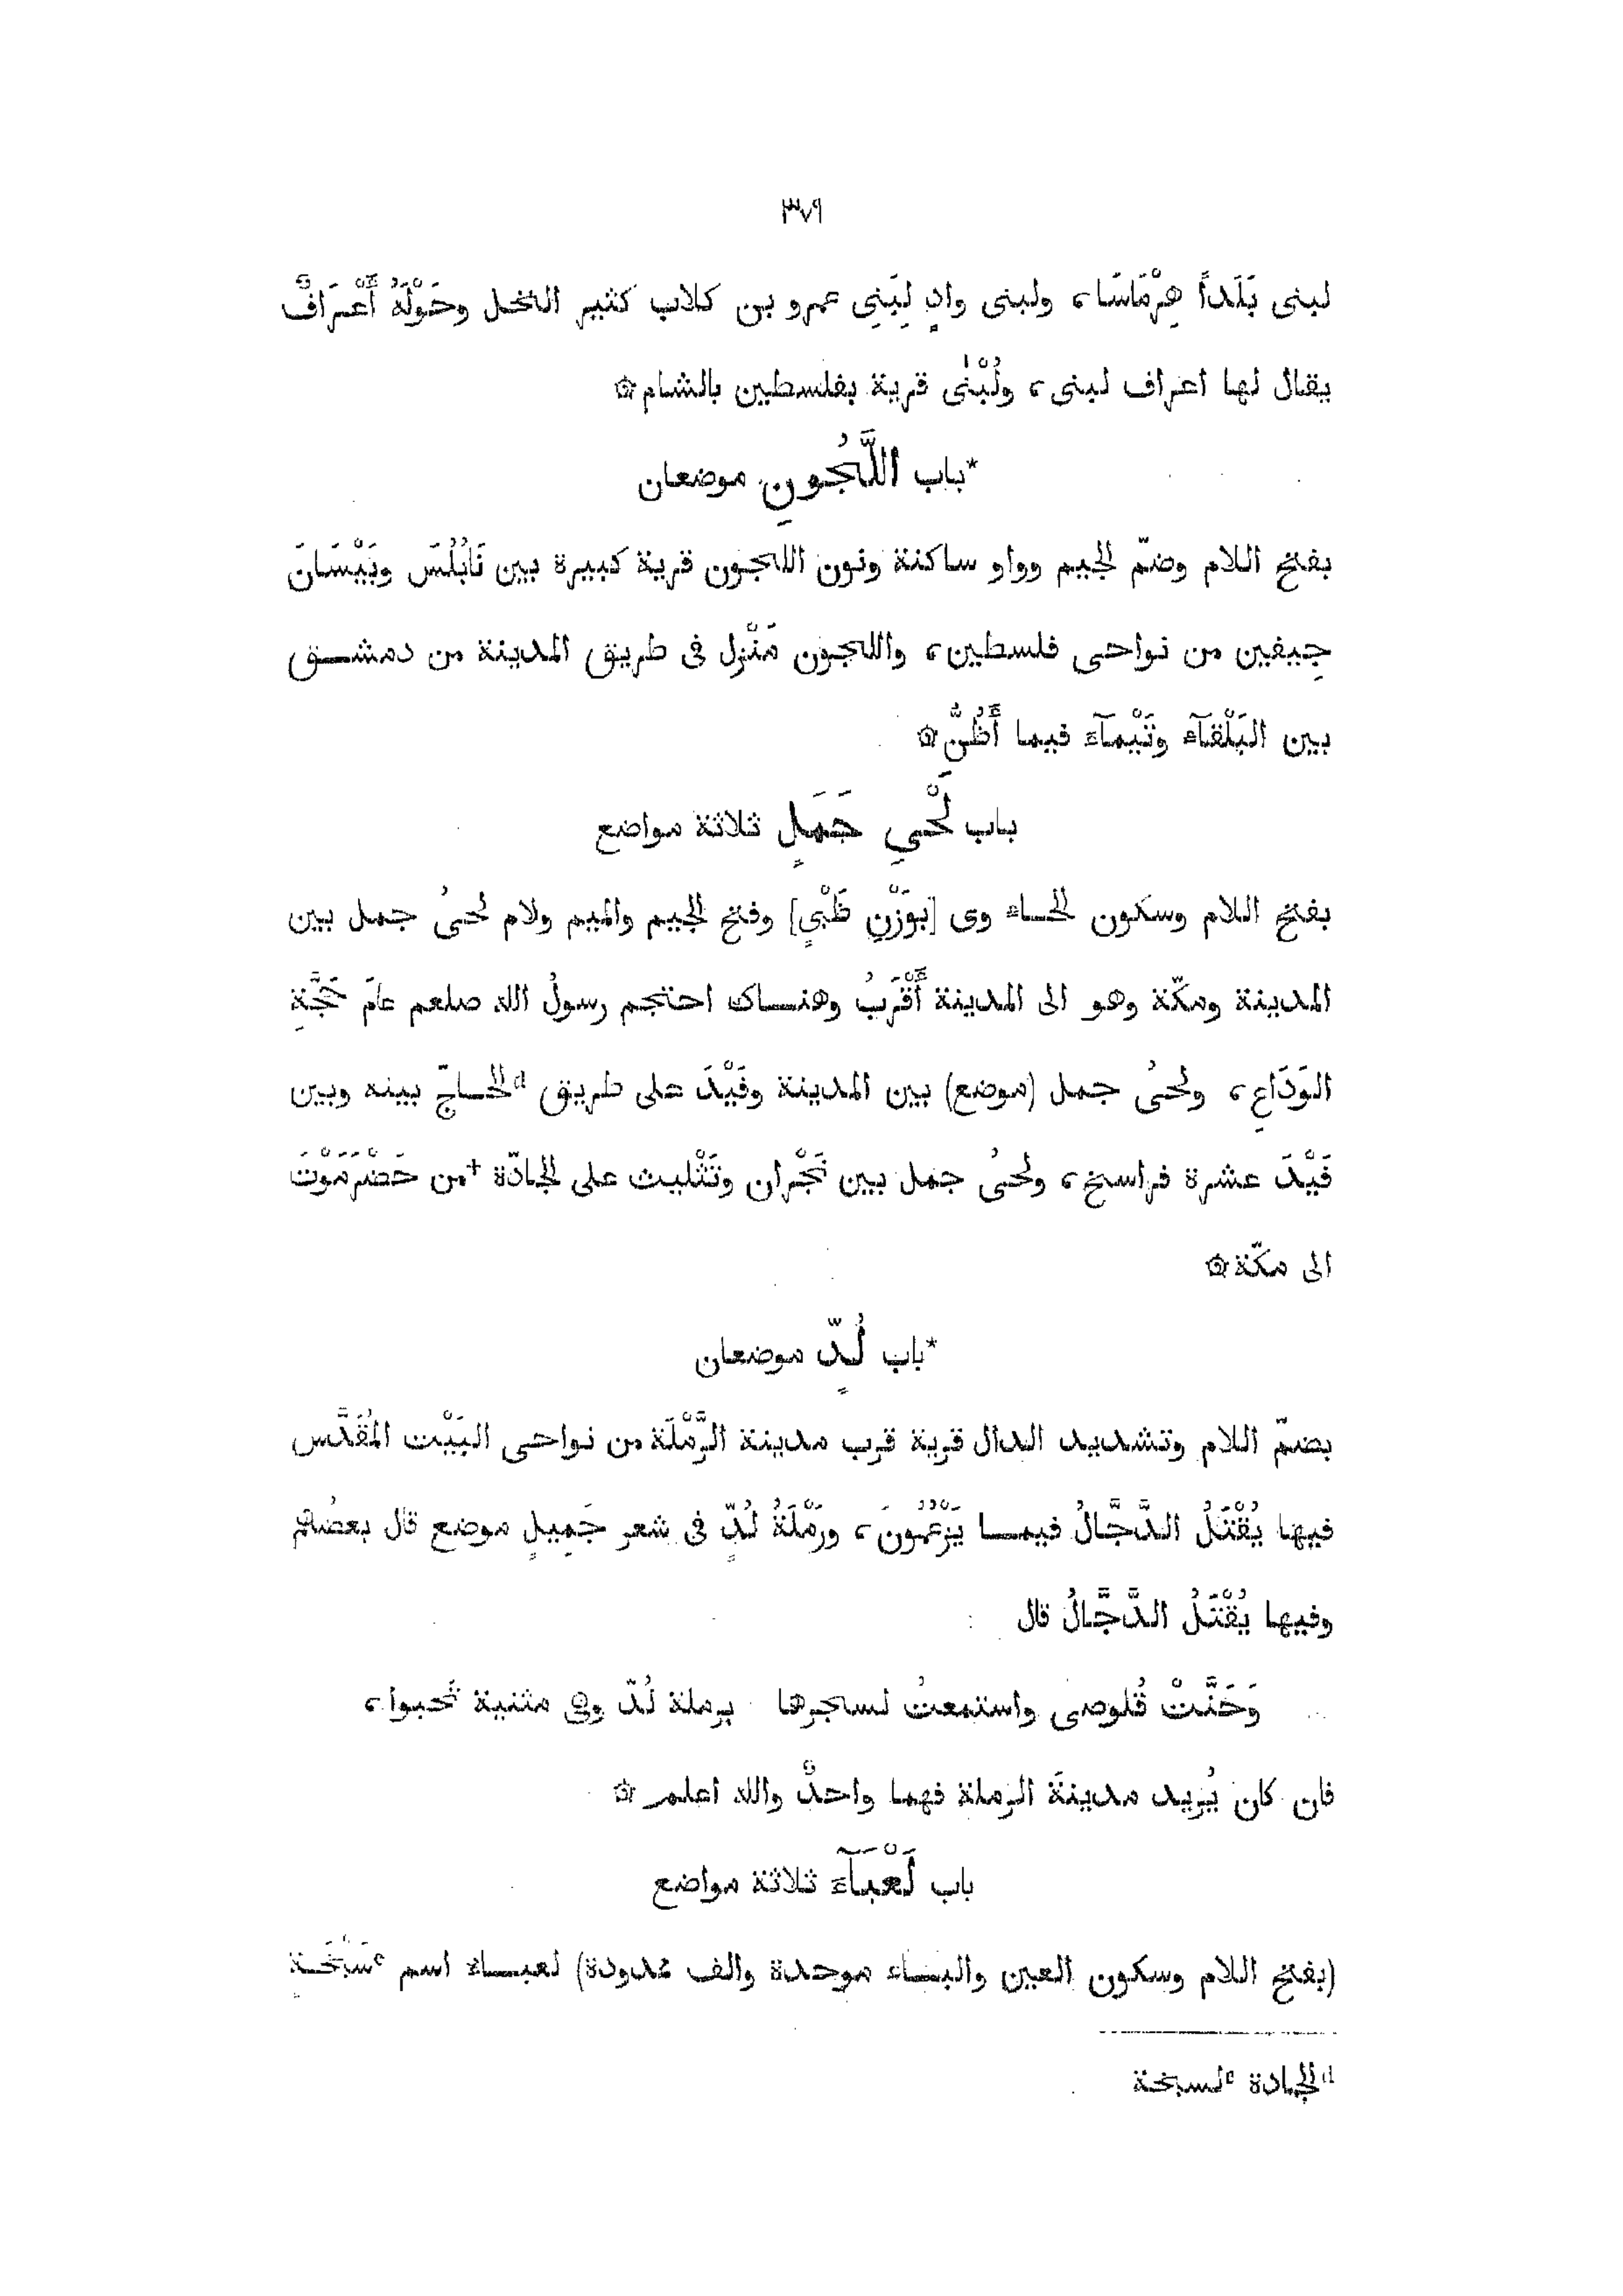 ٣٧٩
لبنى بَلَداً هِرْمَاسًا، ولبنى وادٍ لِبَنِى عمرو بن كلاب كثير النخل وحَوْلَهُ أَعْرَافٌ
يقال لها اعراف لبنى، ولُبْنٰى قرية بفلسطين بالشام۞
*باب اللَّجُونِ موضعان
بفتح اللام وضمّ الجيم وواو ساكنة ونون اللجون قرية كبيرة بين نَابُلُسَ وبَيْسَانَ
جِيفين من نواحى فلسطين، واللجون مَنْزِل فى طريق المدينة من دمشق
بين البَلْقآء وتَيْمآء فيما أَظُنُّ۞
باب لَحْىِ جَمَلٍ ثلاثة مواضع
بفتح اللام وسكون الحاء وى [بوَزْنِ ظَبْىٍ] وفتح الجيم والميم ولام لحىُ جمل بين
المدينة ومكّة وهو الى المدينة أَقْرَبُ وهناك احتجم رسولُ الله صلعم عامَ حَجَّةِ
الوَدَاعِ، ولحىُ جمل (موضع) بين المدينة وفَيْدَ على طريق dالحاجّ بينه وبين
فَيْدَ عشرة فراسخ، ولحىُ جمل بين نَجْران وتَثْليث على الجادّة †من حَضْرَمَوْتَ
الى مكّة۞
*باب لُدٍّ موضعان
بضمّ اللام وتشديد الدال قرية قرب مدينة الرَّمْلَة من نواحى البَيْت المُقَدَّس
فيها يُقْتَلُ الدَّجَّالُ فيما يَزْعُمُونَ، ورَمْلَةُ لُدٍّ فى شعر جَمِيلٍ موضع قال بعضُهم
وفيها يُقْتَلُ الدَّجَّالُ قال
وَحَنَّتْ قُلوصى واستمعتُ لسجرها برملة لُدّ وهى مثنية تَحبوا،
فان كان يُريد مدينةَ الرملة فهما واحدٌ والله اعلم۞
باب لَعْبَآء ثلاثة مواضع
(بفتح اللام وسكون العين والباء موحدة والف ممدودة) لعباء اسم eسَبْخَة
dالجادة eلسبخة